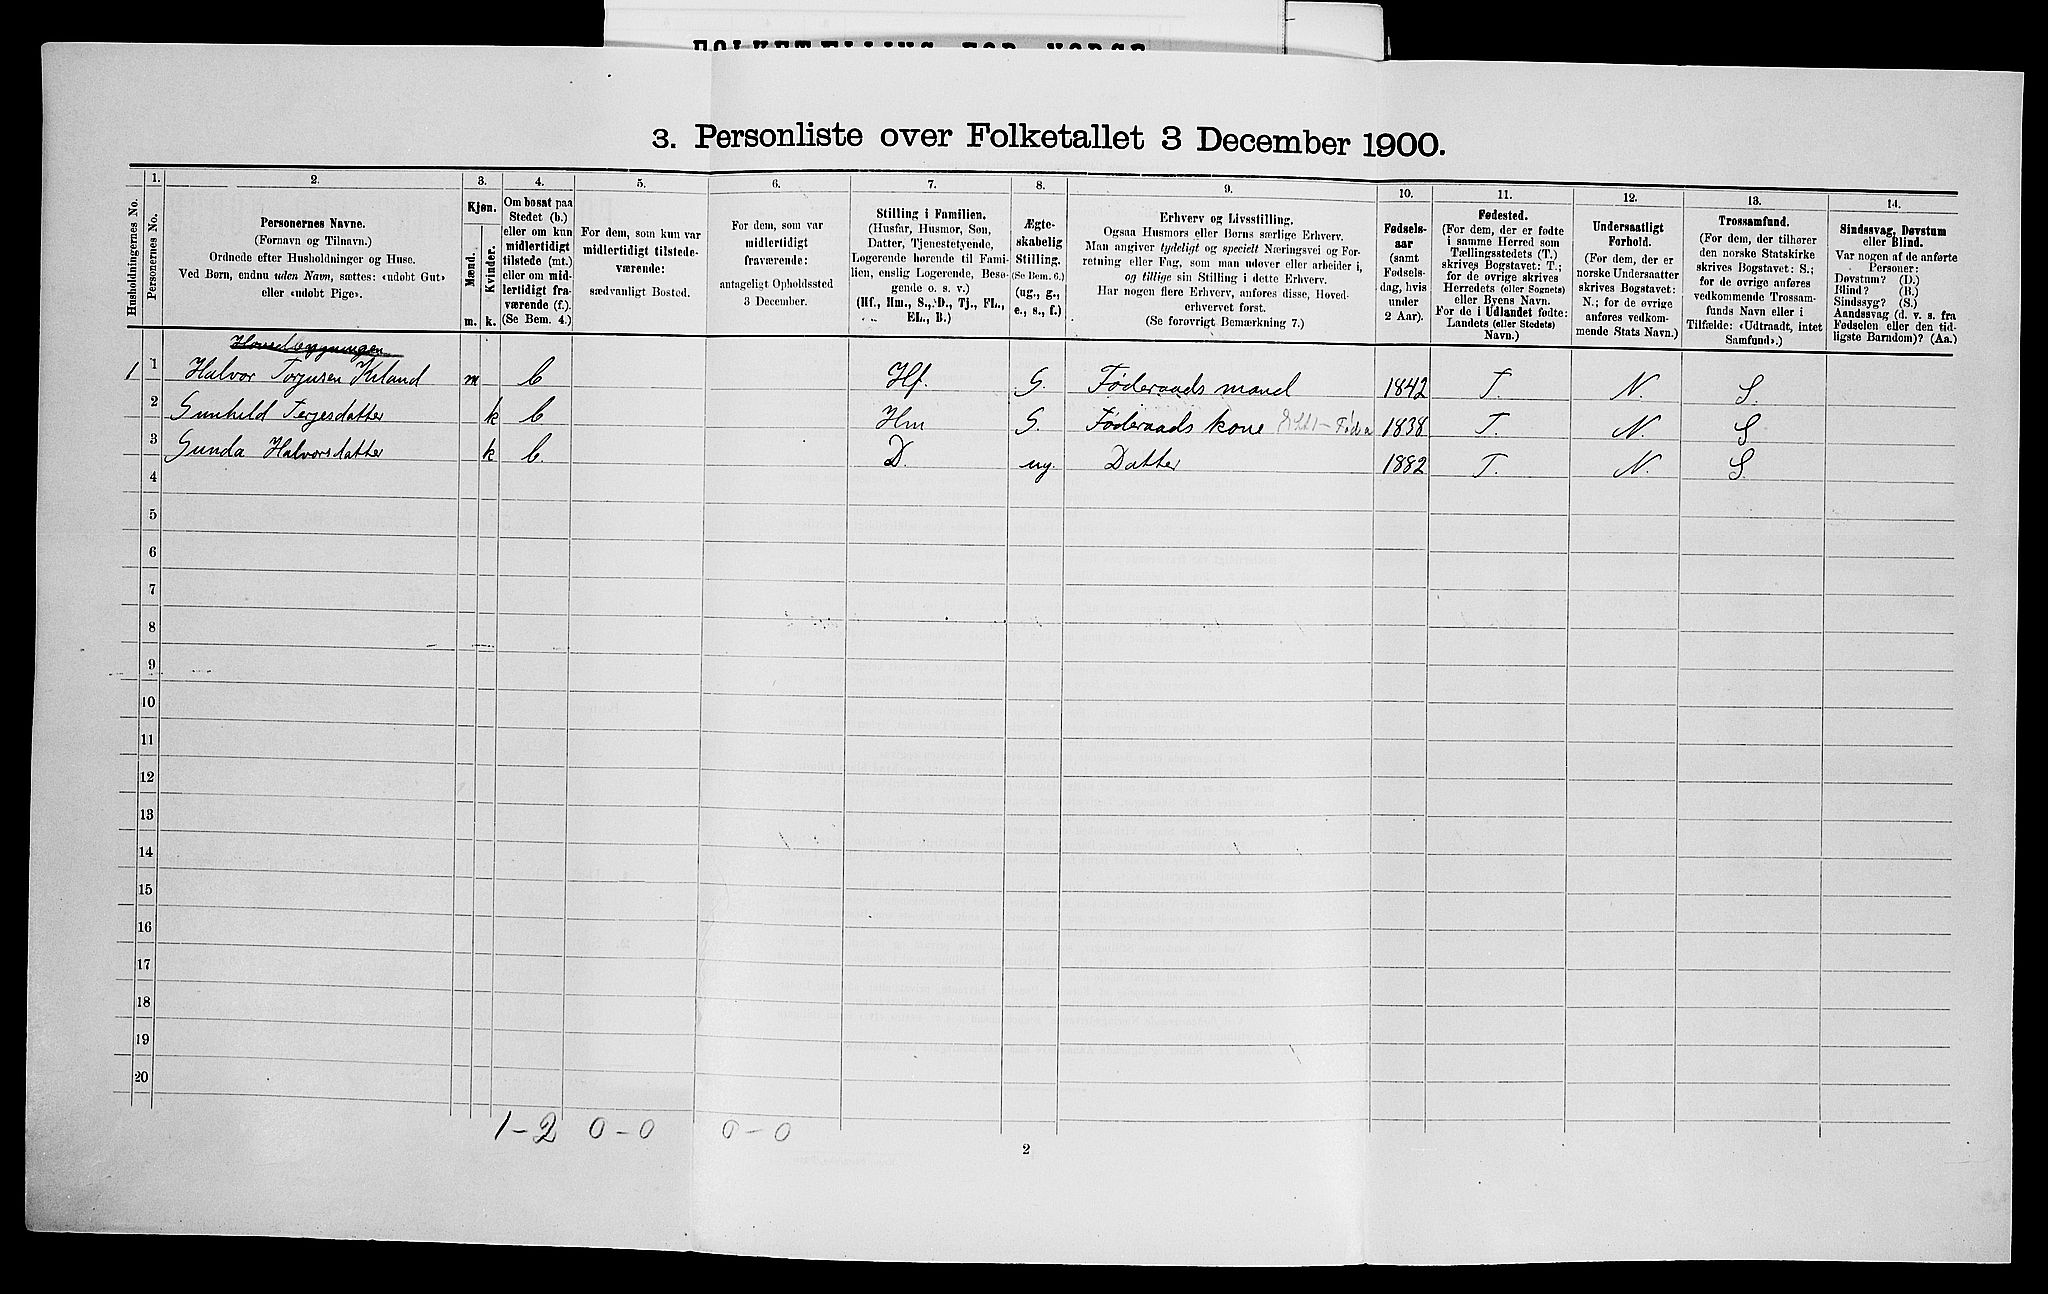 FOLKETÆLLING FOR NORGE
3. Personliste over Folketallet 3 December 1900.
Husholdningernes No.
1.
Personernes No.
2.
Personernes Navne.
(Fornavn og Tilnavn.)
Ordnede efter Husholdninger og Huse.
Ved Børn, endnu uden Navn, sættes: «udøbt Gut»
eller «udøbt Pige».
3.
Kjøn.
Mænd.
Kvinder.
m. k.
4.
Om bosat paa
Stedet (b.)
eller om kun
midlertidigt
tilstede (mt.)
eller om mid-
lertidigt fra-
værende (f.).
(Se Bem. 4.)
5.
For dem, som kun var
midlertidigt tilstede-
værende:
sædvanligt Bosted.
6.
For dem, som var
midlertidigt
fraværende:
antageligt Opholdssted
3 December.
7.
Stilling i Familien.
(Husfar, Husmor, Søn,
Datter, Tjenestetyende,
Logerende hørende til Fami-
lien, enslig Logerende, Besø-
gende o. s. v.)
(Hf., Hm., S., D., Tj., FL.,
EL., B.)
8.
Ægte-
skabelig
Stilling.
(Se Bem. 6.)
(ug., g.,
e., s., f.)
9.
Erhverv og Livsstilling.
Ogsaa Husmors eller Børns særlige Erhverv.
Man angiver tydeligt og specielt Næringsvei og For-
retning eller Fag, som man udøver eller arbeider i,
og tillige sin Stilling i dette Erhverv.
Har nogen flere Erhverv, anføres disse, Hoved-
erhvervet først.
(Se forøvrigt Bemærkning 7.)
10.
Fødsels-
aar
(samt
Fødsels-
dag, hvis
under
2 Aar).
11.
Fødested.
(For dem, der er fødte
i samme Herred som
Tællingsstedets (T.)
skrives Bogstavet: T.;
for de øvrige skrives
Herredets (eller Sognets)
eller Byens Navn.
For de i Udlandet fødte:
Landets (eller Stedets)
Navn.)
12.
Undersaatligt
Forhold.
(For dem, der er
norske Undersaatter
skrives Bogstavet:
N.; for de øvrige
anføres vedkom-
mende Stats Navn.)
13.
Trossamfund.
(For dem, der tilhører
den norske Statskirke
skrives Bogstavet: S.;
for de øvrige anføres
vedkommende Trossam-
funds Navn eller i
Tilfælde: «Udtraadt, intet
Samfund».)
14.
Sindssvag, Døvstum
eller Blind.
Var nogen af de anførte
Personer:
Døvstum? (D.)
Blind? (B.)
Sindssyg? (S.)
Aandssvag (d. v. s. fra
Fødselen eller den tid-
ligste Barndom)? (Aa.)
Hovedbygningen
1 1 Halvor Torjusen Kiland m b Hf. G. Føderaads mand 1842 T. N. S.
2 Gunhild Terjesdatter k b Hm G. Føderaads kone 1838 T. N. S
3 Gunda Halvorsdatter k b. D. ug. Datter 1882 T. N. S.
4
5
6
7
8
9
10
11
12
13
14
15
16
17
18
19
20
1-2 0-0 0-0
2